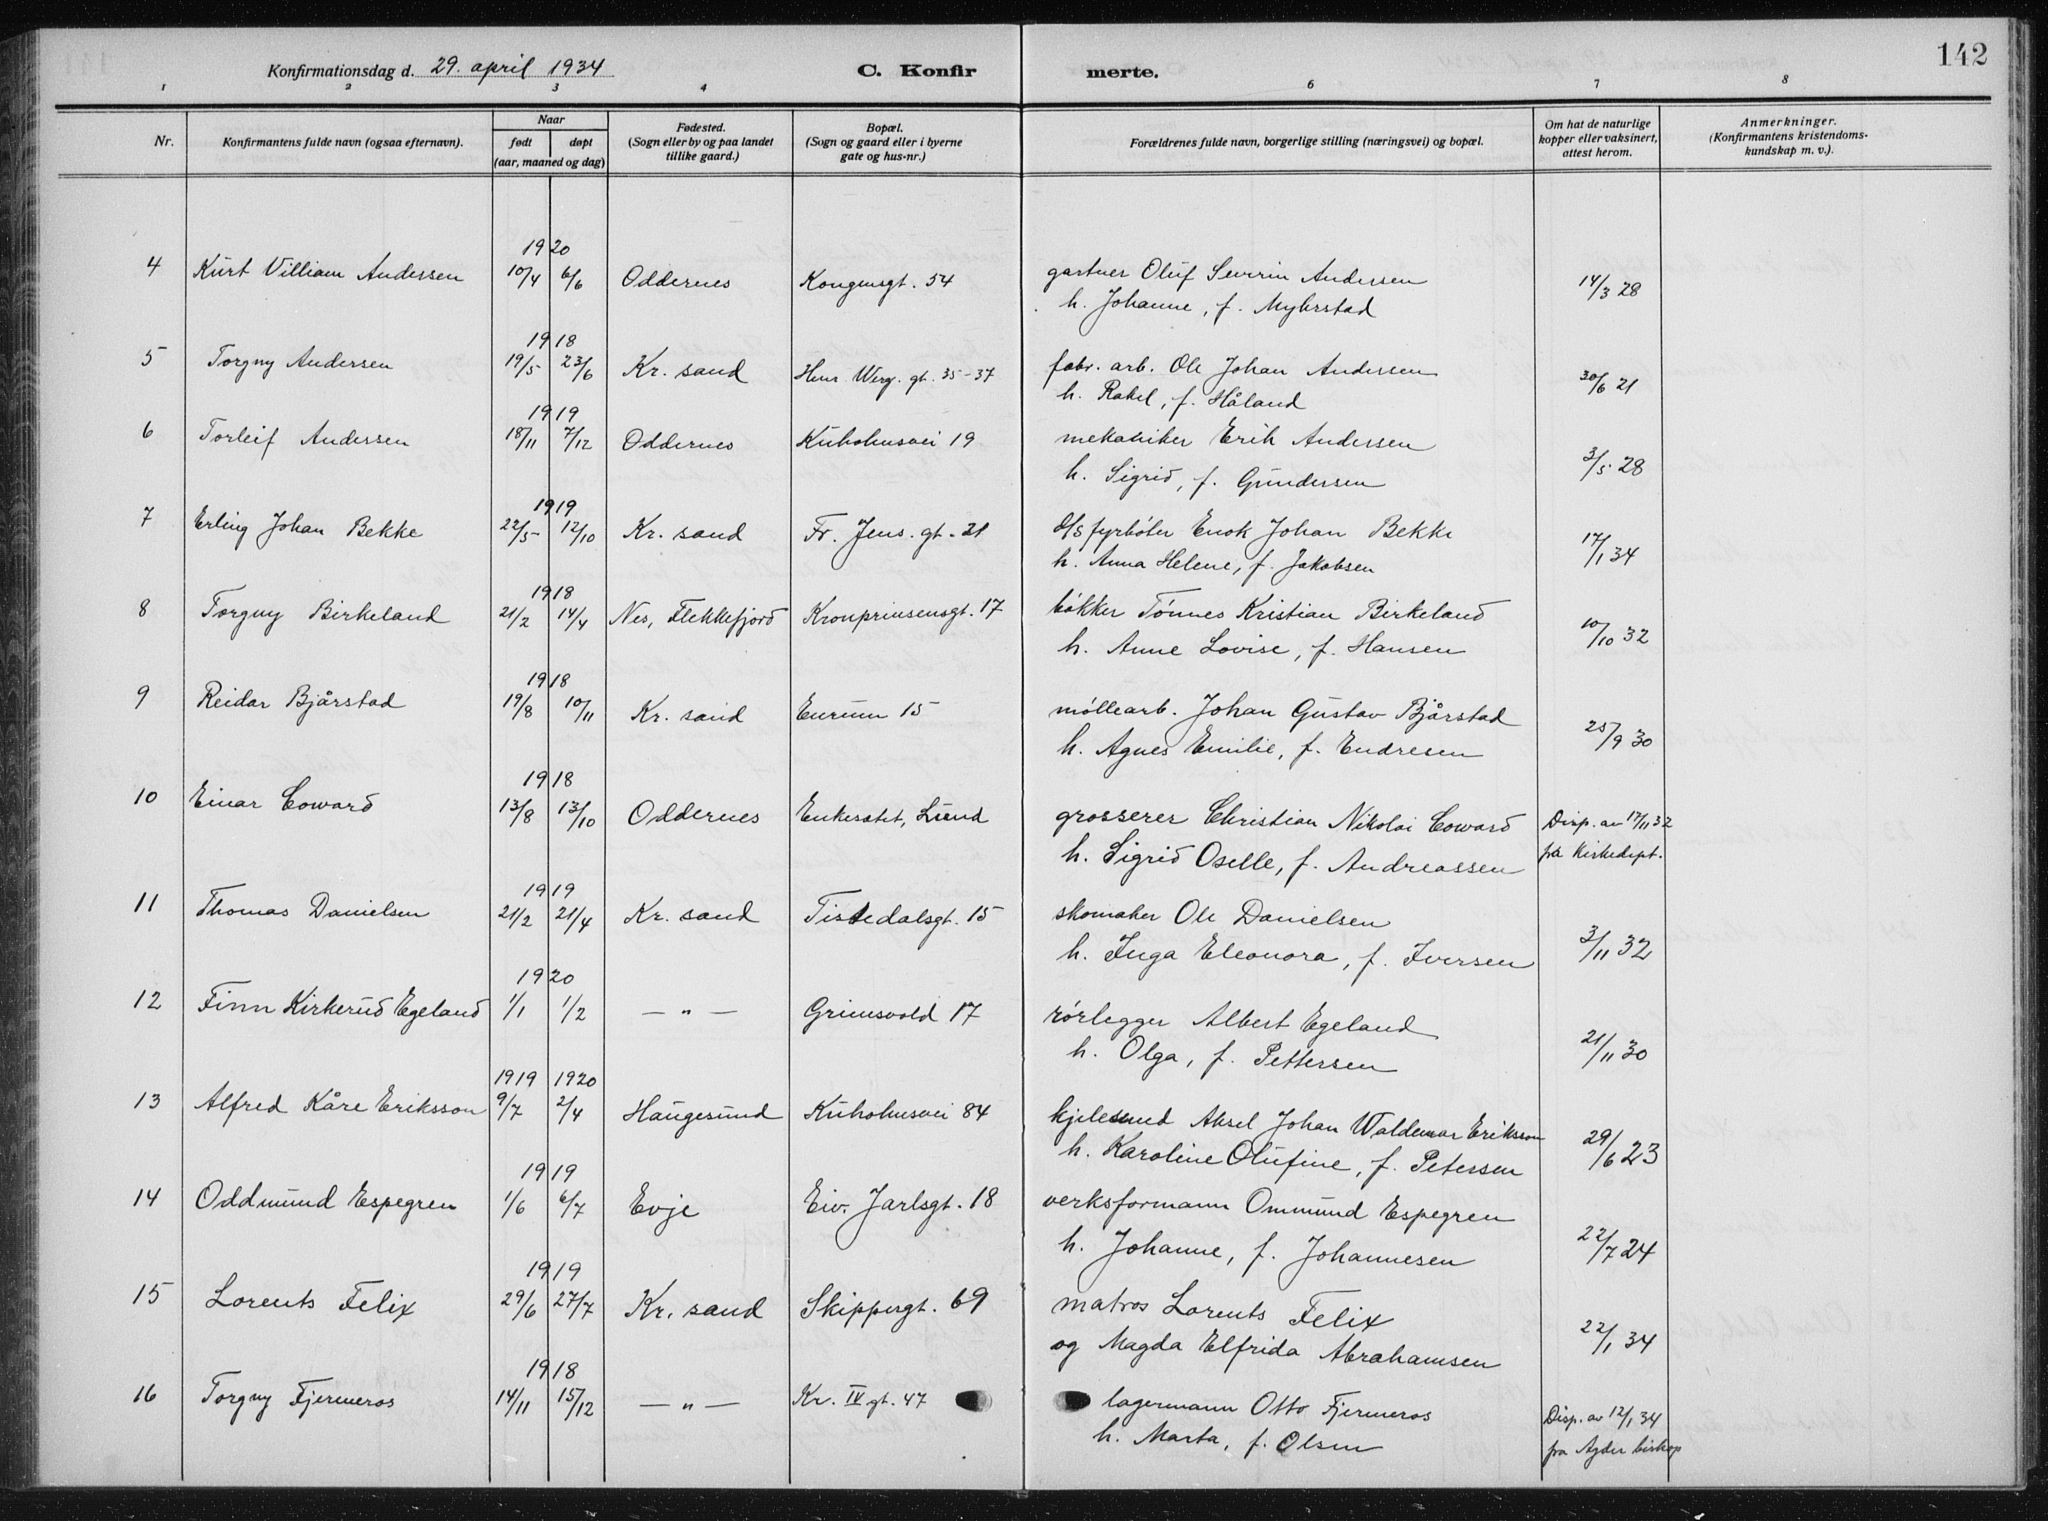 142
Konfirmationsdag d. 29. april 1934 C. Konfirmerte.
1 2 3 4 6 7 8
Nr. Konfirmantens fulde navn (ogsaa efternavn). Naar født døpt (aar, maaned og dag) Fødested. (Sogn eller by og paa landet tillike gaard.) Bopæl. (Sogn og gaard eller i byerne gate og hus-nr.) Forældrenes fulde navn, borgerlige stilling (næringsvei) og bopæl. Om hat de naturlige kopper eller vaksinert, attest herom. Anmerkninger. (Konfirmantens kristendomskundskap m. v.).
1920
4 Kurt Villiam Andersen 10/4 6/6 Oddernes Kongensgt. 54 gartner Oluf Severin Andersen 14/3 28
h. Johanne, f. Myhrstad
1918
5 Torgny Andersen 19/5 23/6 Kr. sand Henr. Werg. gt. 35-37 fabr. arb. Ole Johan Andersen 30/6 21
h. Rakel, f. Håland
1919
6 Torleif Andersen 18/11 7/12 Oddernes Kuholmsvei 19 mekaniker Erik Andersen 3/5 28
h. Sigrid, f. Gundersen
1919
7 Erling Johan Bekke 22/5 12/10 Kr. sand Fr. Jens. gt. 21 d/s fyrbøter Enok Johan Bekke 17/1 34
h. Anna Helene, f. Jakobsen
1918
8 Torgny Birkeland 21/2 14/4 Nes, Flekkefjord Kronprinsensgt. 17 bøkker Tønnes Kristian Birkeland 10/10 32
h. Anne Lovise, f. Hansen
1918
9 Reidar Bjårstad 19/8 10/11 Kr. sand Eurum 15 møllearb. Johan Gustav Bjårstad 25/9 30
h. Agnes Emilie, f. Endresen
1918
10 Einar Coward 13/8 13/10 Oddernes Enkesetet, Lund grosserer Christian Nikolai Coward Disp. av 17/11 32
h. Sigrid Oselle, f. Andreassen fra Kirkedept.
1919
11 Thomas Danielsen 21/2 21/4 Kr. sand Tistedalsgt. 15 skomaker Ole Danielsen 3/11 32
h. Inga Eleonora, f. Iversen
1920
12 Finn Kirkerud Egeland 1/1 1/2 — " — Grimsvold 17 rørlegger Albert Egeland 21/11 30
h. Olga, f. Pettersen
1919 1920
13 Alfred Kåre Eriksson 9/7 2/4 Haugesund Kuholmsvei 84 kjelesmed Aksel Johan Waldemar Eriksson 29/6 23
h. Karoline Olufine, f. Petersen
1919
14 Oddmund Espegren 1/6 6/7 Evje Eiv. Jarlsgt. 18 verksformann Ommund Espegren 22/7 24
h. Johanne, f. Johannesen
1919
15 Lorents Felix 29/6 27/7 Kr. sand Skippergt. 69 matros Lorents Felix 22/1 34
og Magda Elfrida Abrahamsen
1918
16 Torgny Fjermeros 14/11 15/12 — " — Kr. IV gt. 47 lagermann Otto Fjermeros Disp. av 12/1 34
h. Marta, f. Olsen fra Agder biskop